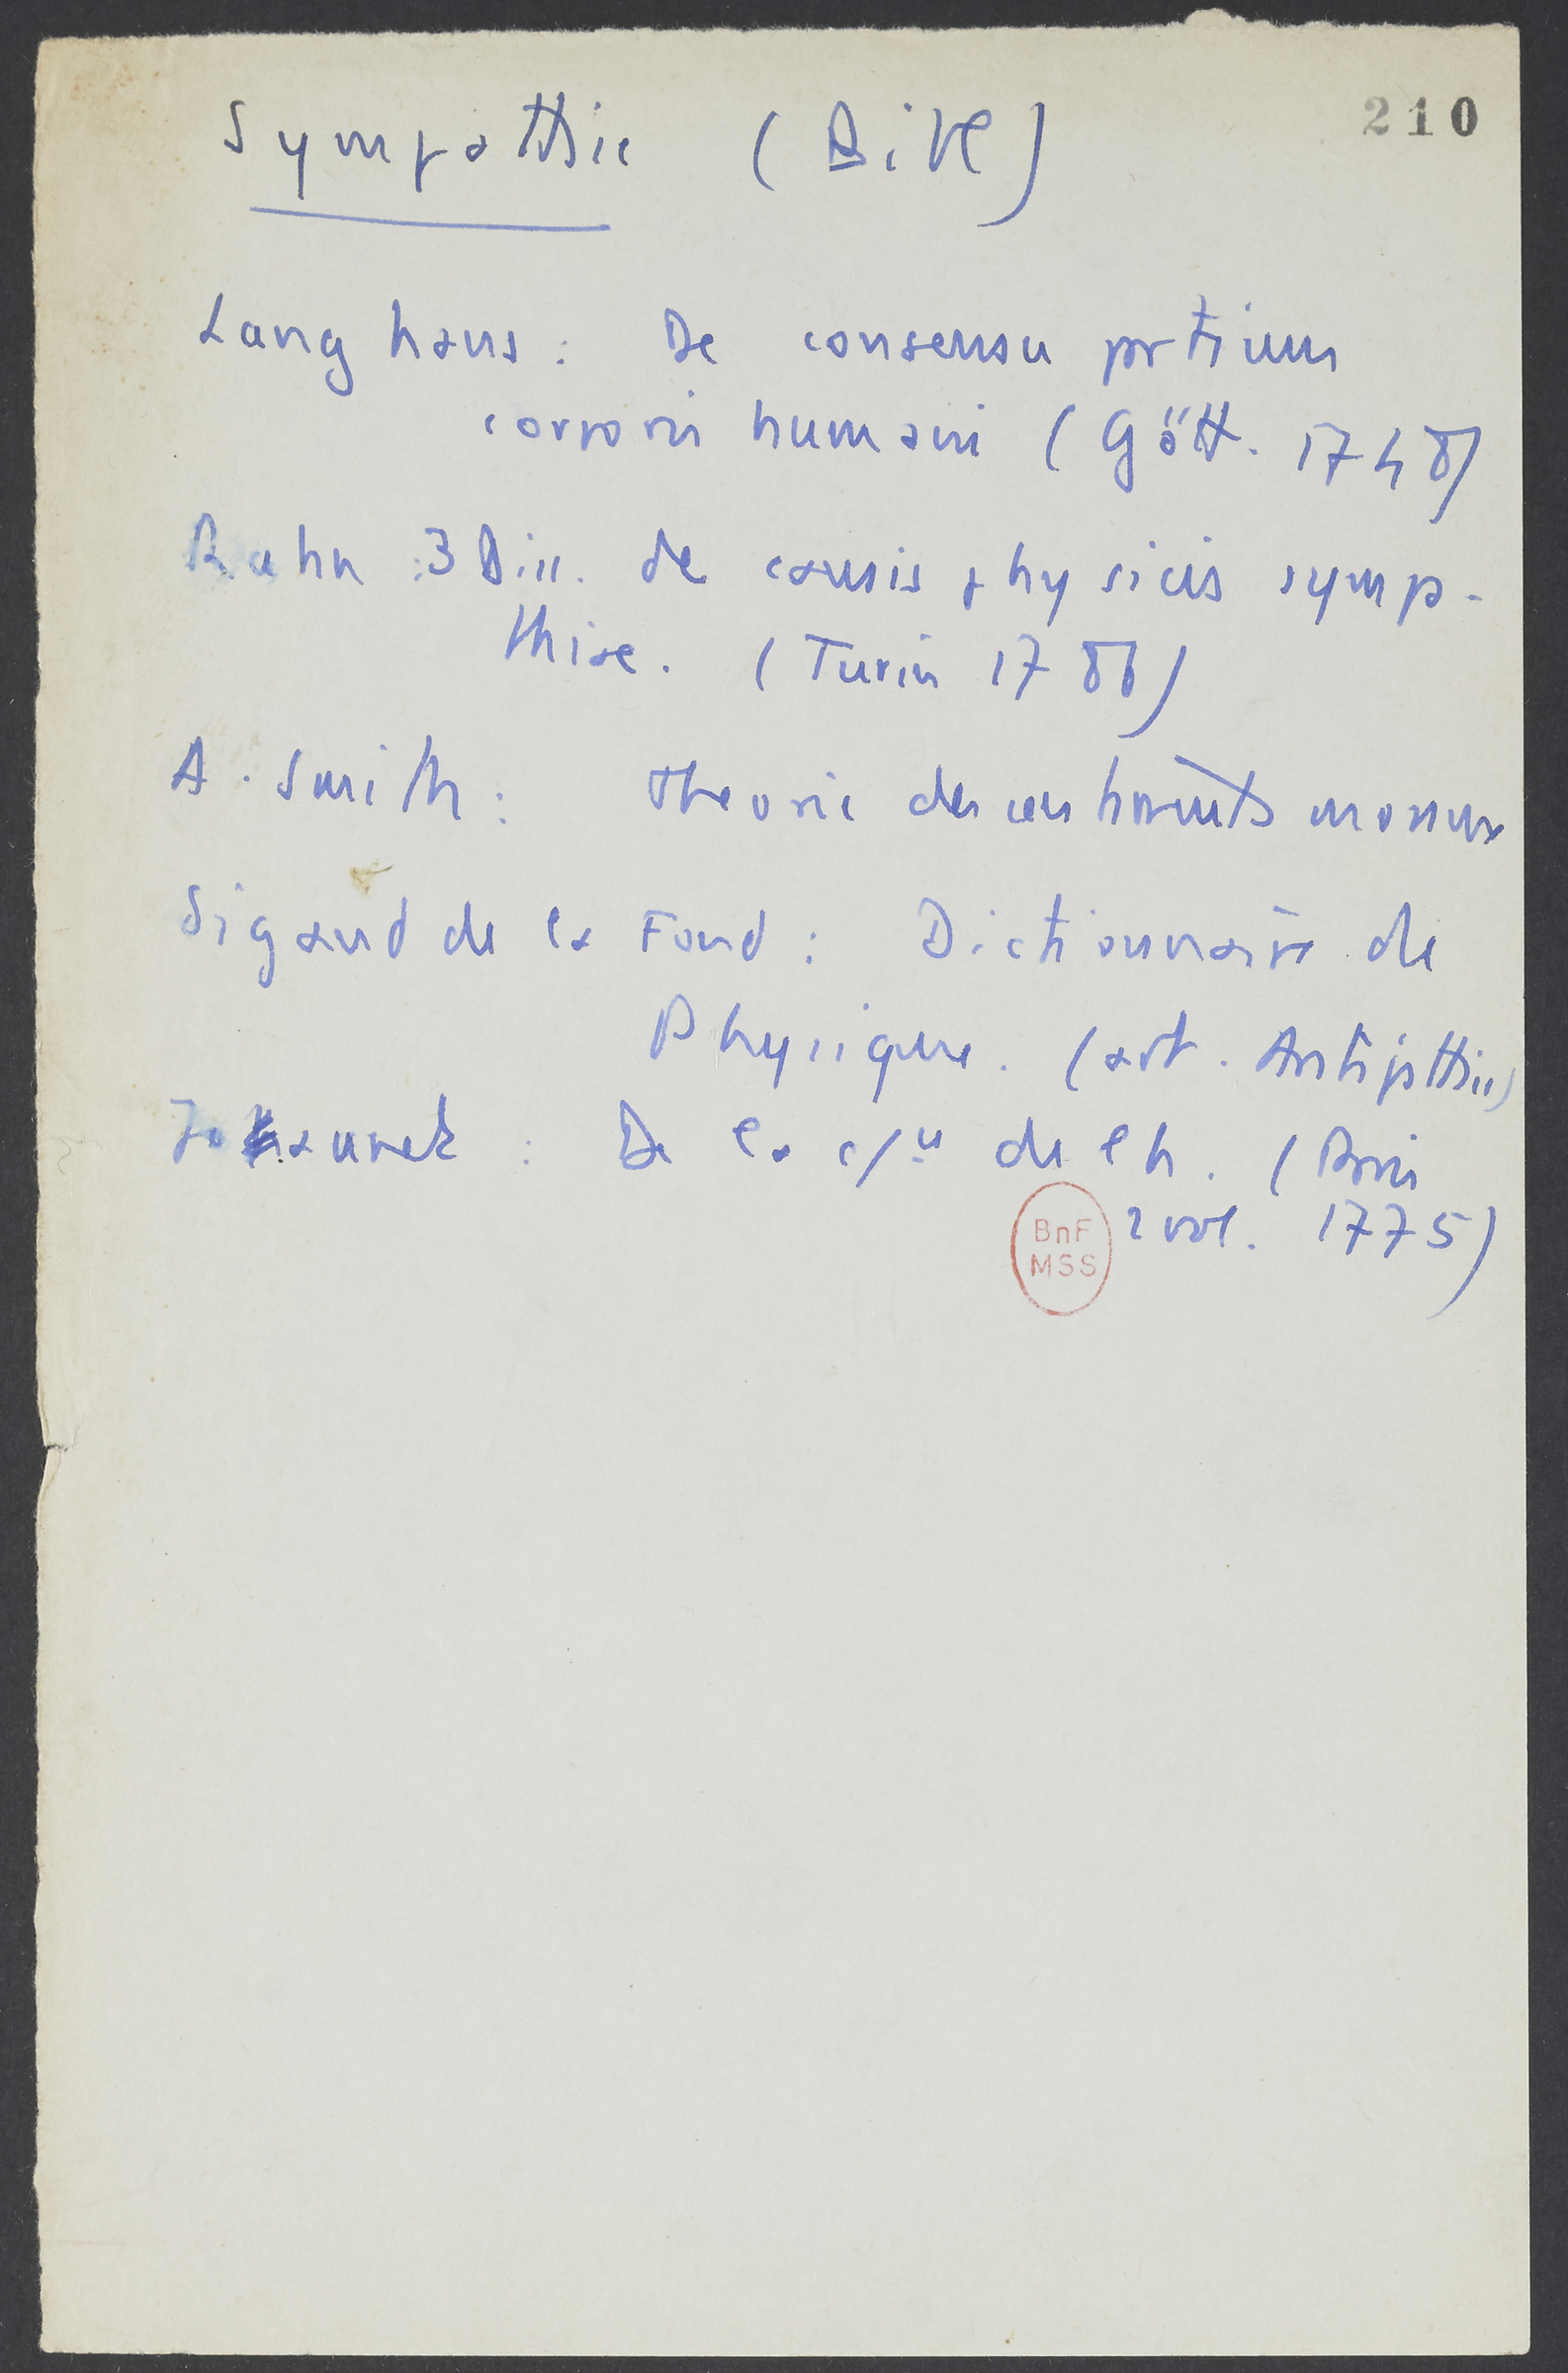 210
Sympathie (Bible)
Langhans : De consensu partium
corporis humani (Gött. 1748)
Rahn : 3 Diss. de causis physicis sympa-
thiae. (Turin 1788)
A. Smith : Theorie des sentiments moraux
Sigaud de la Fond : Dictionnaire de
Physique. (art. Antipathie)
De la c/n de l'h. (Paris
2 vol. 1775)
BnF
MSS